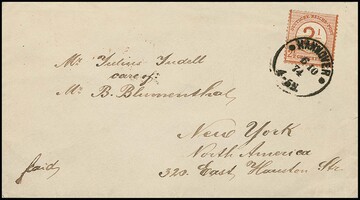 2½
HANNOVER
6 10
74
4-5N.
Mr. Julius Indell
care of:
Mr. B. Blumenthal,
New York
North America
320. East, Houston Str.
paid,